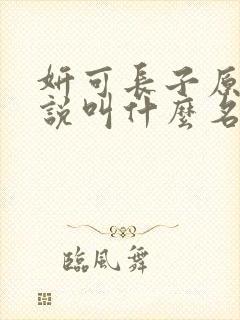 妍可長子原
說叫什麼名
臨風舞